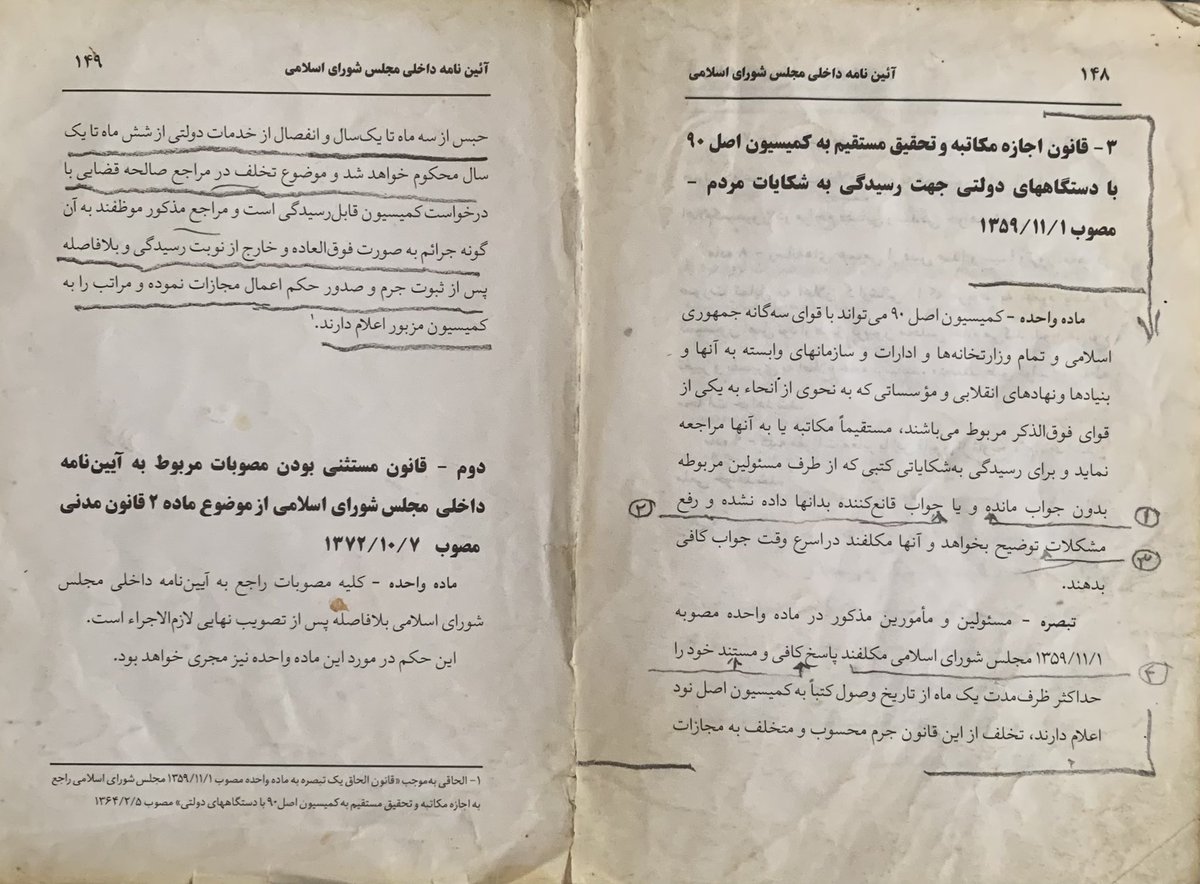 ۱۴۸
آئین نامه داخلی مجلس شورای اسلامی
۳- قانون اجازه مکاتبه و تحقیق مستقیم به کمیسیون اصل ۹۰
با دستگاههای دولتی جهت رسیدگی به شکایات مردم -
مصوب ۱۳۵۹/۱۱/۱
ماده واحده - کمیسیون اصل ۹۰ می‌تواند با قوای سه‌گانه جمهوری
اسلامی و تمام وزارتخانه‌ها و ادارات و سازمانهای وابسته به آنها و
بنیادها و نهادهای انقلابی و مؤسساتی که به نحوی از انحاء به یکی از
قوای فوق‌الذکر مربوط می‌باشند، مستقیماً مکاتبه یا به آنها مراجعه
نماید و برای رسیدگی به‌شکایاتی کتبی که از طرف مسئولین مربوطه
بدون جواب مانده و یا جواب قانع‌کننده بدانها داده نشده و رفع
۱
۲
مشکلات توضیح بخواهد و آنها مکلفند در اسرع وقت جواب کافی
۳
بدهند.
تبصره - مسئولین و مأمورین مذکور در ماده واحده مصوبه
۱۳۵۹/۱۱/۱ مجلس شورای اسلامی مکلفند پاسخ کافی و مستند خود را
حداکثر ظرف‌مدت یک ماه از تاریخ وصول کتباً به کمیسیون اصل نود
اعلام دارند، تخلف از این قانون جرم محسوب و متخلف به مجازات
آئین نامه داخلی مجلس شورای اسلامی
۱۴۹
حبس از سه ماه تا یک‌سال و انفصال از خدمات دولتی از شش ماه تا یک
سال محکوم خواهد شد و موضوع تخلف در مراجع صالحه قضایی با
درخواست کمیسیون قابل‌رسیدگی است و مراجع مذکور موظفند به آن
گونه جرائم به صورت فوق‌العاده و خارج از نوبت رسیدگی و بلافاصله
پس از ثبوت جرم و صدور حکم اعمال مجازات نموده و مراتب را به
کمیسیون مزبور اعلام دارند.۱
دوم - قانون مستثنی بودن مصوبات مربوط به آیین‌نامه
داخلی مجلس شورای اسلامی از موضوع ماده ۲ قانون مدنی
مصوب ۱۳۷۲/۱۰/۷
ماده واحده - کلیه مصوبات راجع به آیین‌نامه داخلی مجلس
شورای اسلامی بلافاصله پس از تصویب نهایی لازم‌الاجراء است.
این حکم در مورد این ماده واحده نیز مجری خواهد بود.
۱- الحاقی به‌موجب «قانون الحاق یک تبصره به ماده واحده مصوب ۱۳۵۹/۱۱/۱ مجلس شورای اسلامی راجع
به اجازه مکاتبه و تحقیق مستقیم به کمیسیون اصل ۹۰ با دستگاههای دولتی» مصوب ۱۳۶۴/۲/۵